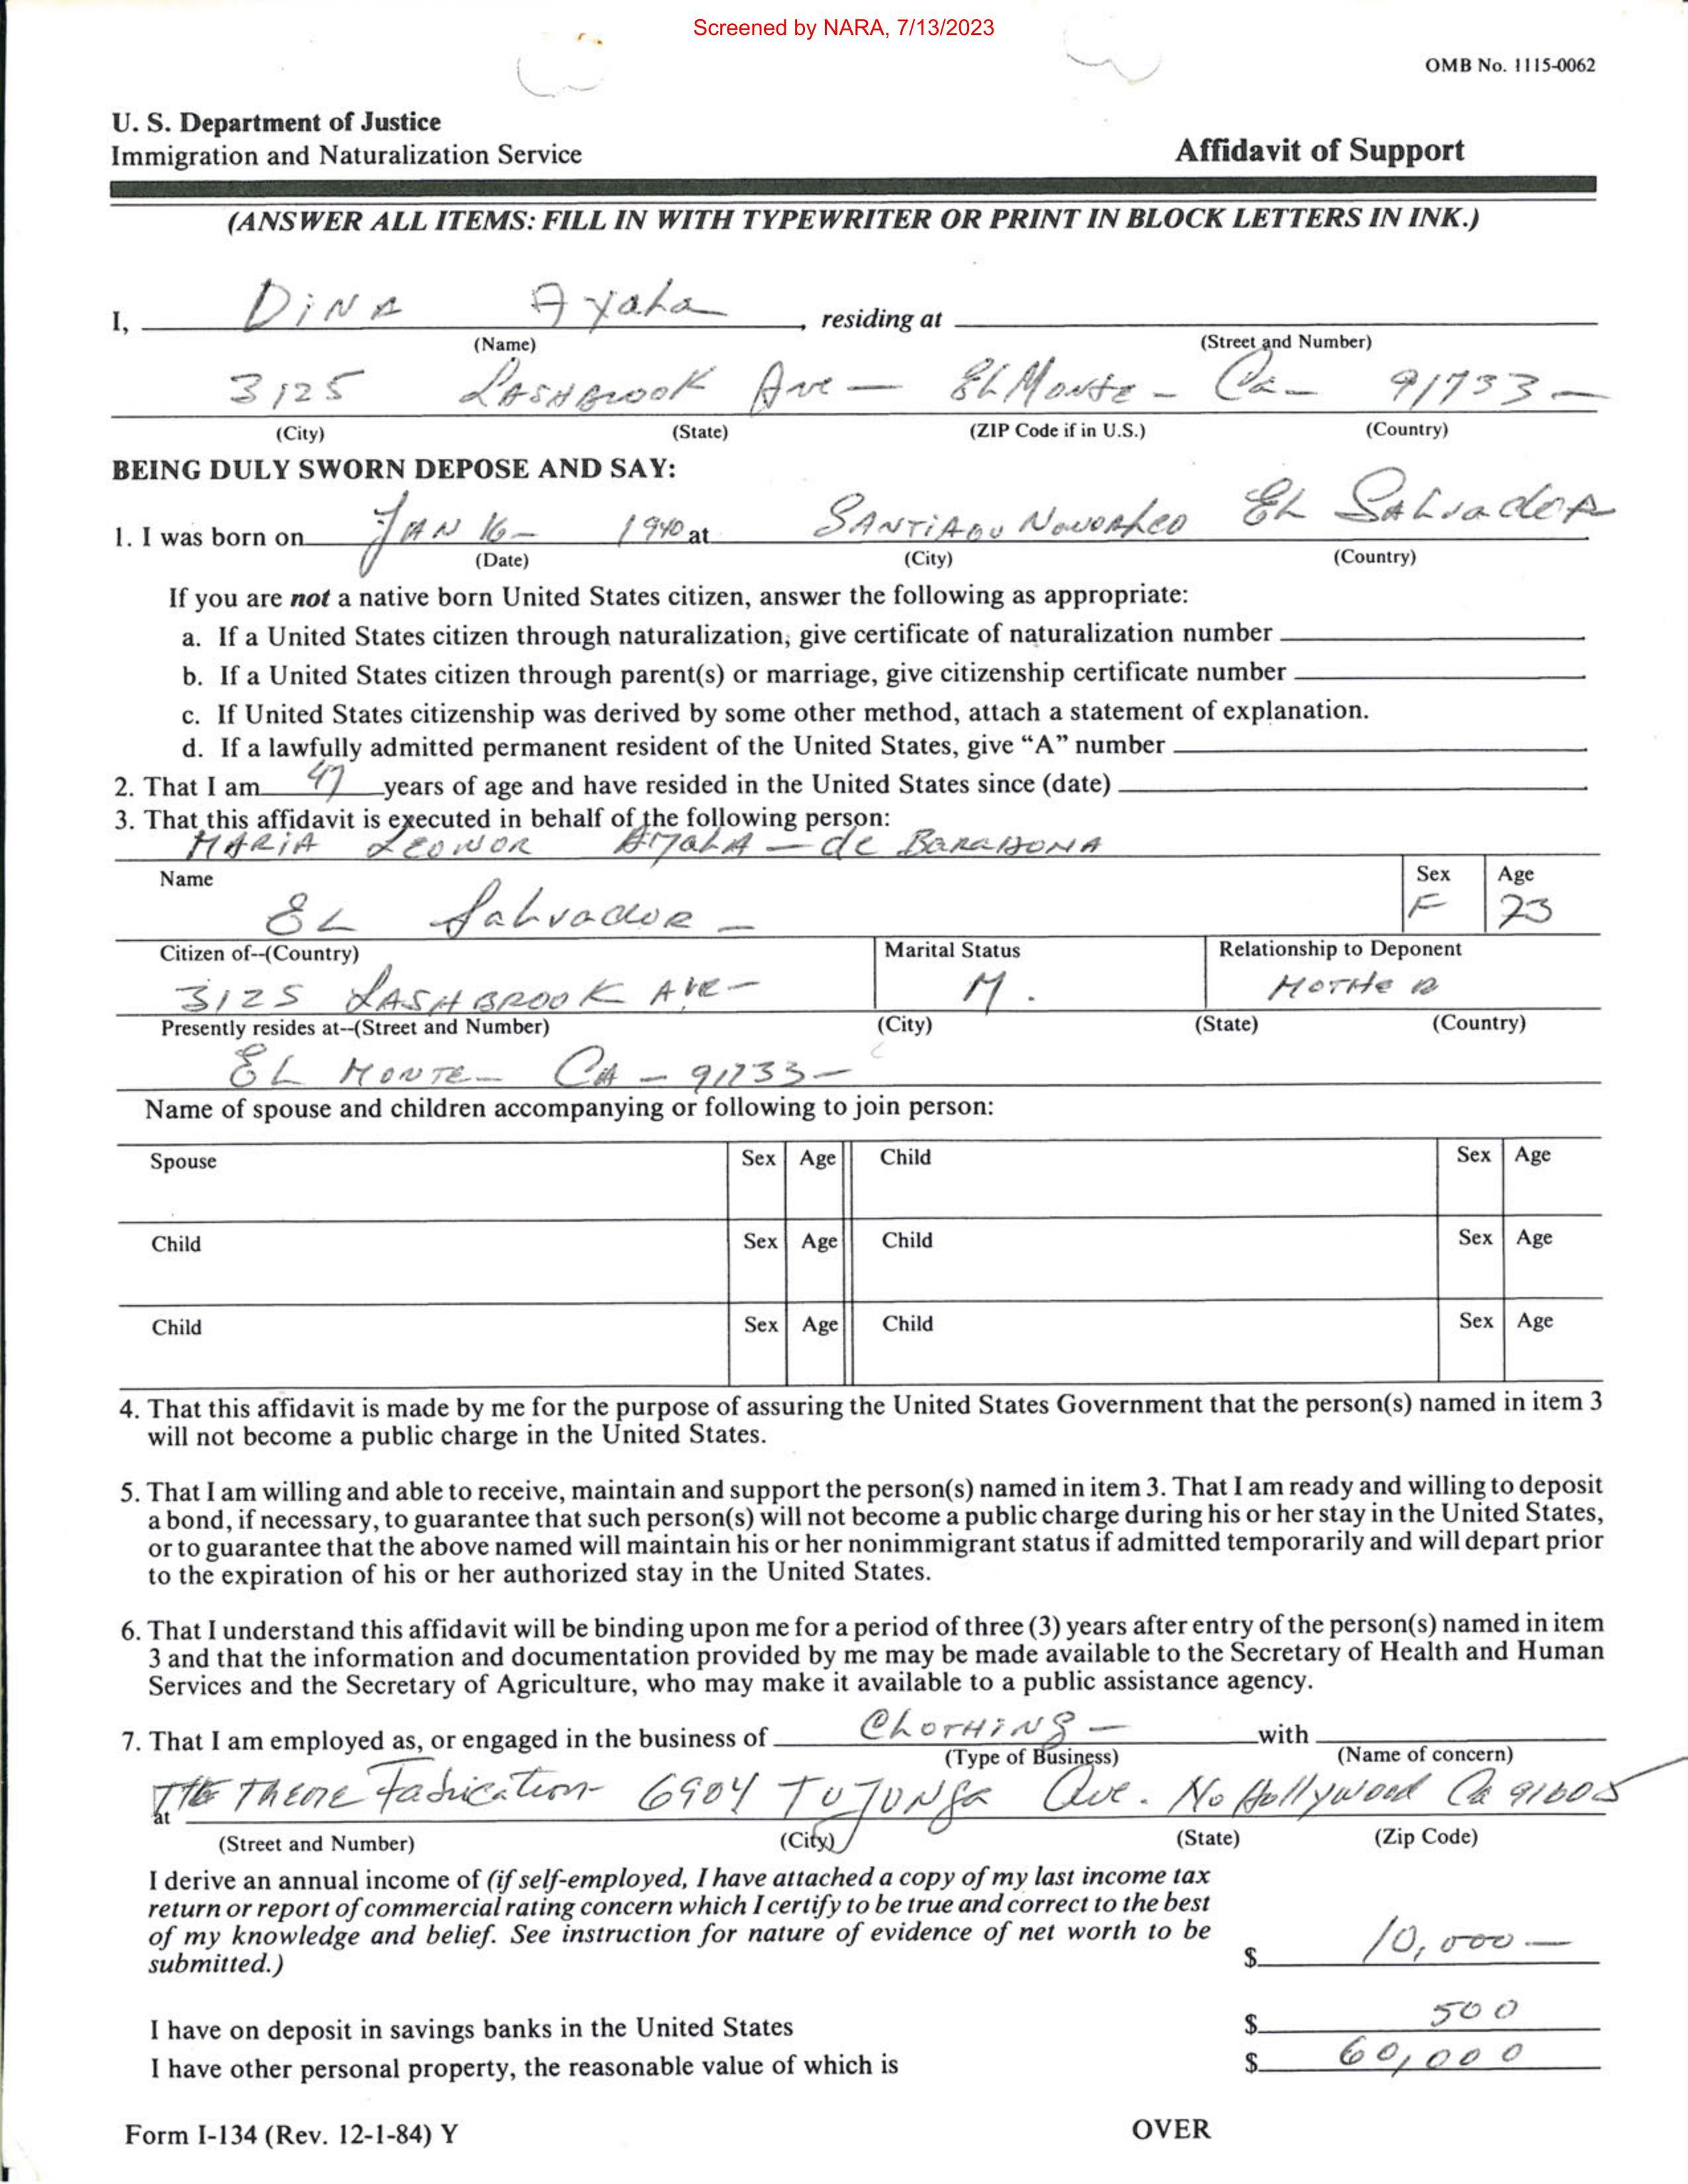 Screened by NARA, 7/13/2023
OMB No. 1115-0062
U. S. Department of Justice
Immigration and Naturalization Service
Affidavit of Support
(ANSWER ALL ITEMS: FILL IN WITH TYPEWRITER OR PRINT IN BLOCK LETTERS IN INK.)
I, DiNA Ayala, residing at
(Name) (Street and Number)
3125 LASHBROOK Ave — EL Monte — Ca — 91733 —
(City) (State) (ZIP Code if in U.S.) (Country)
BEING DULY SWORN DEPOSE AND SAY:
1. I was born on JAN 16 — 1940 at SANTIAGO EL SALvadoR
(Date) (City) (Country)
If you are not a native born United States citizen, answer the following as appropriate:
a. If a United States citizen through naturalization, give certificate of naturalization number
b. If a United States citizen through parent(s) or marriage, give citizenship certificate number
c. If United States citizenship was derived by some other method, attach a statement of explanation.
d. If a lawfully admitted permanent resident of the United States, give "A" number
2. That I am 47 years of age and have resided in the United States since (date)
3. That this affidavit is executed in behalf of the following person:
MARiA LEONOR AyaLA — de BARAHONA
Name Sex Age
EL SaLvadoR — F 23
Citizen of--(Country) Marital Status Relationship to Deponent
3125 LASHBROOK AVE — M. MOTHeR
Presently resides at--(Street and Number) (City) (State) (Country)
EL MONTE — CA — 91733 —
Name of spouse and children accompanying or following to join person:
Spouse Sex Age Child Sex Age
Child Sex Age Child Sex Age
Child Sex Age Child Sex Age
4. That this affidavit is made by me for the purpose of assuring the United States Government that the person(s) named in item 3
will not become a public charge in the United States.
5. That I am willing and able to receive, maintain and support the person(s) named in item 3. That I am ready and willing to deposit
a bond, if necessary, to guarantee that such person(s) will not become a public charge during his or her stay in the United States,
or to guarantee that the above named will maintain his or her nonimmigrant status if admitted temporarily and will depart prior
to the expiration of his or her authorized stay in the United States.
6. That I understand this affidavit will be binding upon me for a period of three (3) years after entry of the person(s) named in item
3 and that the information and documentation provided by me may be made available to the Secretary of Health and Human
Services and the Secretary of Agriculture, who may make it available to a public assistance agency.
7. That I am employed as, or engaged in the business of CLOTHiNG — with
(Type of Business) (Name of concern)
at THE THEME Fabrication 6904 TUJUNGa Ave. No Hollywood Ca 91605
(Street and Number) (City) (State) (Zip Code)
I derive an annual income of (if self-employed, I have attached a copy of my last income tax
return or report of commercial rating concern which I certify to be true and correct to the best
of my knowledge and belief. See instruction for nature of evidence of net worth to be
submitted.) $ 10,000 —
I have on deposit in savings banks in the United States $ 500
I have other personal property, the reasonable value of which is $ 60,000
Form I-134 (Rev. 12-1-84) Y OVER